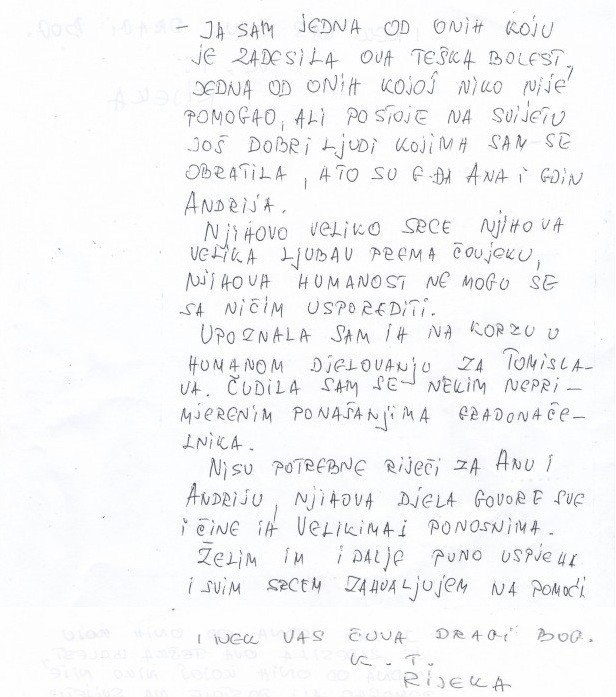 - JA SAM JEDNA OD ONIH KOJU
JE ZADESILA OVA TEŠKA BOLEST,
JEDNA OD ONIH KOJOJ NIKO NIJE
POMOGAO, ALI POSTOJE NA SVIJETU
JOŠ DOBRI LJUDI KOJIMA SAM SE
OBRATILA, A TO SU G-ĐA ANA I GDIN
ANDRIJA.
NJIHOVO VELIKO SRCE NJIHOVA
VELIKA LJUBAV PREMA ČOVJEKU,
NJIHOVA HUMANOST NE MOGU SE
SA NIČIM USPOREDITI.
UPOZNALA SAM IH NA KORZU U
HUMANOM DJELOVANJU ZA TOMISLA-
VA. ČUDILA SAM SE NEKIM NEPRI-
MJERENIM PONAŠANJIMA GRADONAČE-
LNIKA.
NISU POTREBNE RIJEČI ZA ANU I
ANDRIJU, NJIHOVA DJELA GOVORE SVE
I ČINE IH VELIKIMA I PONOSNIMA.
ŽELIM IM I DALJE PUNO USPJEHA
I SVIM SRCEM ZAHVALJUJEM NA POMOĆI
I NEK VAS ČUVA DRAGI BOG.
K. T.
RIJEKA